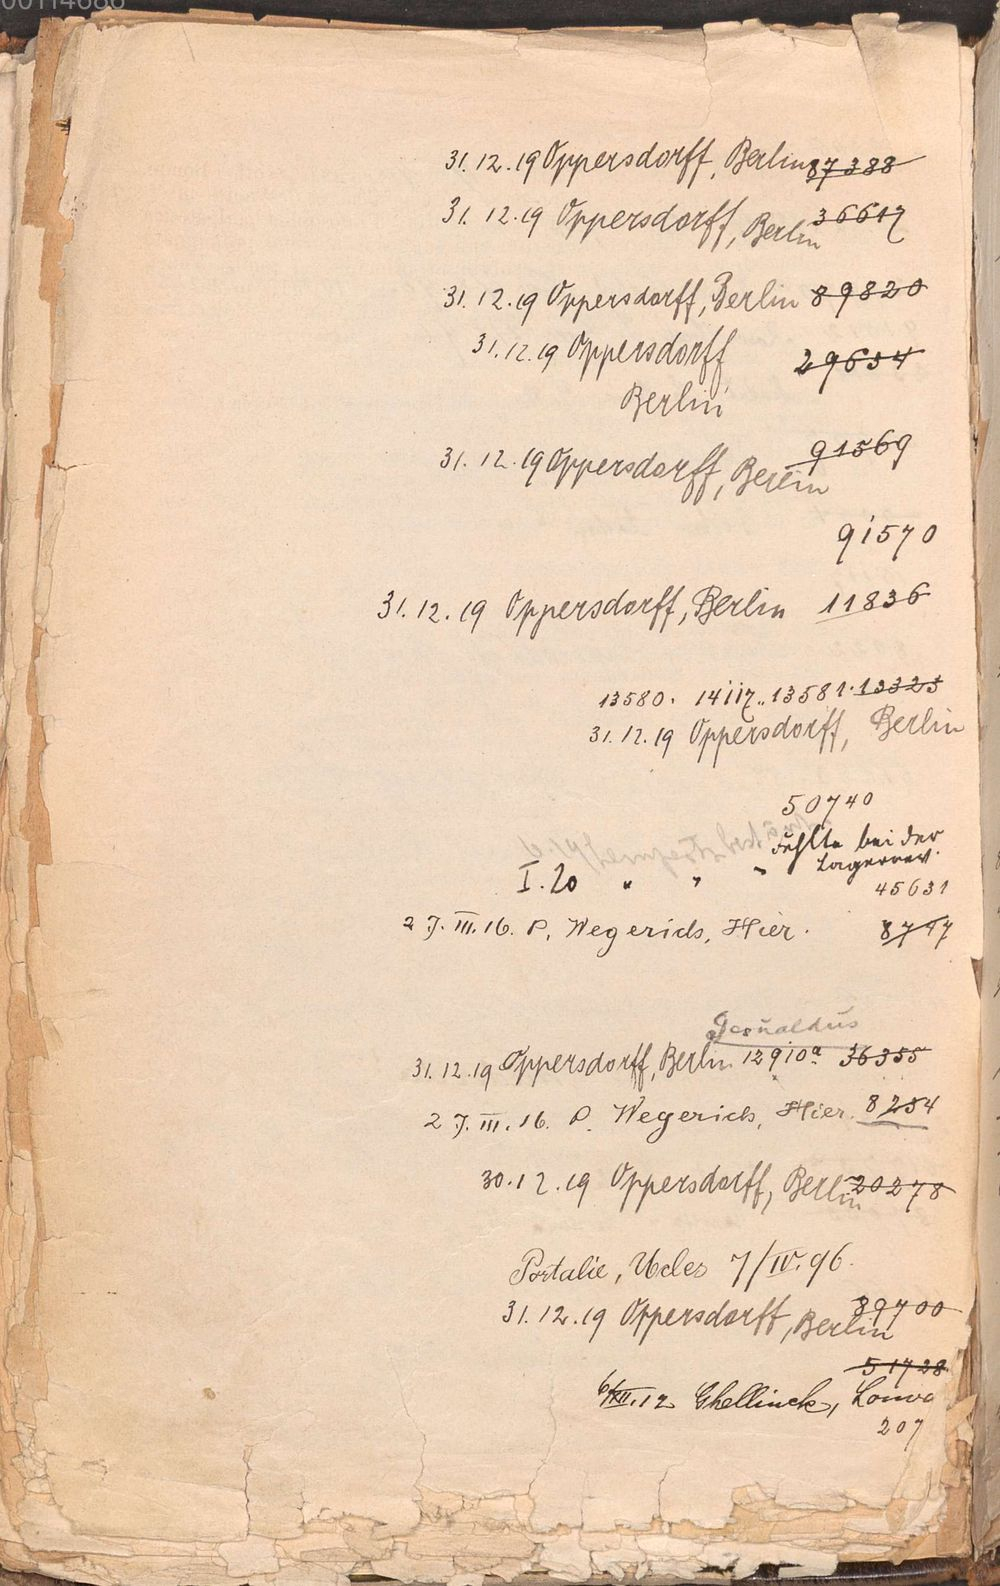 00114686
31.12.19 Oppersdorff, Berlin 87388
31.12.19 Oppersdorff, Berlin 36617
31.12.19 Oppersdorff, Berlin 89820
31.12.19 Oppersdorff 29654
Berlin
31.12.19 Oppersdorff, Berlin 91569
91570
31.12.19 Oppersdorff, Berlin 11836
13580. 14117.. 13581. 13323
31.12.19 Oppersdorff, Berlin
50740
Fehlte bei der
Lagerrev.
I.20 " " "
45631
27.III.16. P. Wegerich, Hier. 8747
Gesualdus
31.12.19 Oppersdorff, Berlin 12910a 36355
27.III.16. P. Wegerich, Hier. 8254
30.12.19 Oppersdorff, Berlin 20278
Portalie, Ucles 7/IV.96.
31.12.19 Oppersdorff, Berlin 89700
51728
6/XII.12 Ghellinck, Louva
207